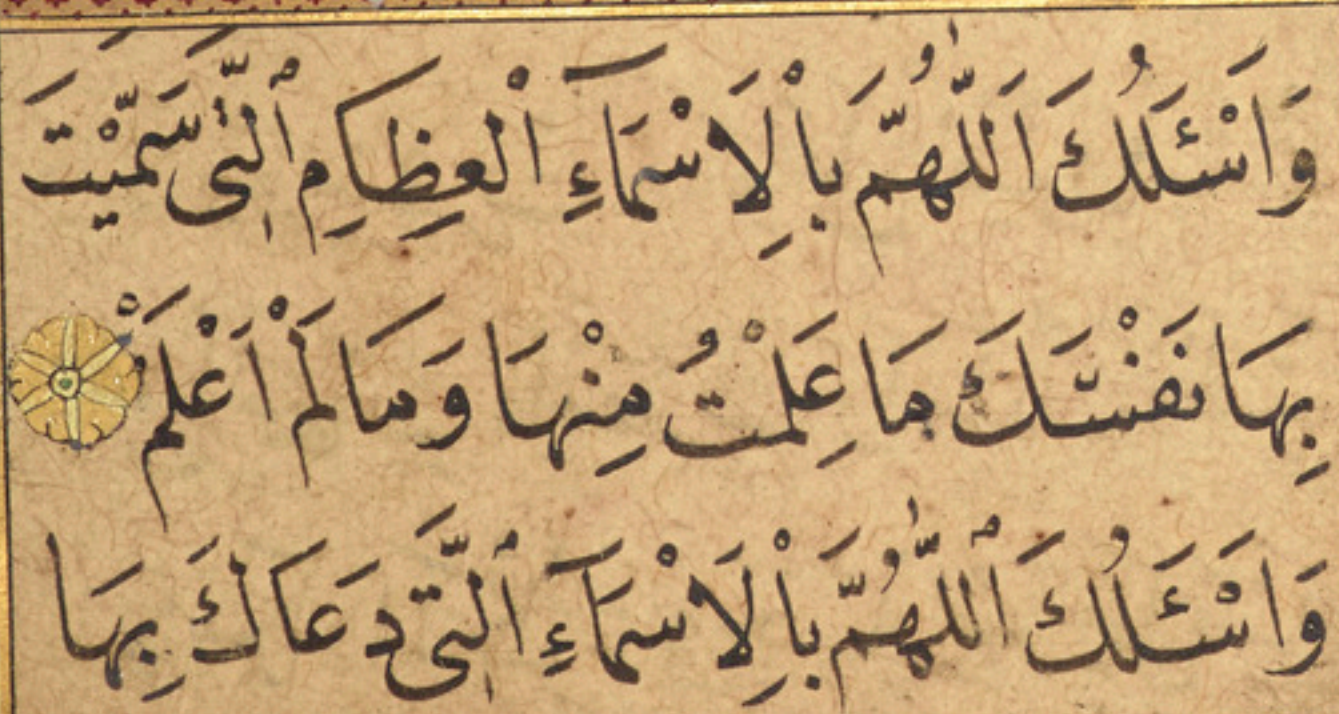 وَاَسْئَلُكَ اَللّٰهُمَّ بِاْلاَسْمَآءِ اْلعِظَامِ الَّتٖى سَمَّيْتَ
بِهَا نَفْسَكَ مَا عَلِمْتُ مِنْهَا وَمَا لَمْ اَعْلَمْ
وَاَسْئَلُكَ اللّٰهُمَّ بِاْلاَسْمَآءِ الَّتٖى دَعَاكَ بِهَا